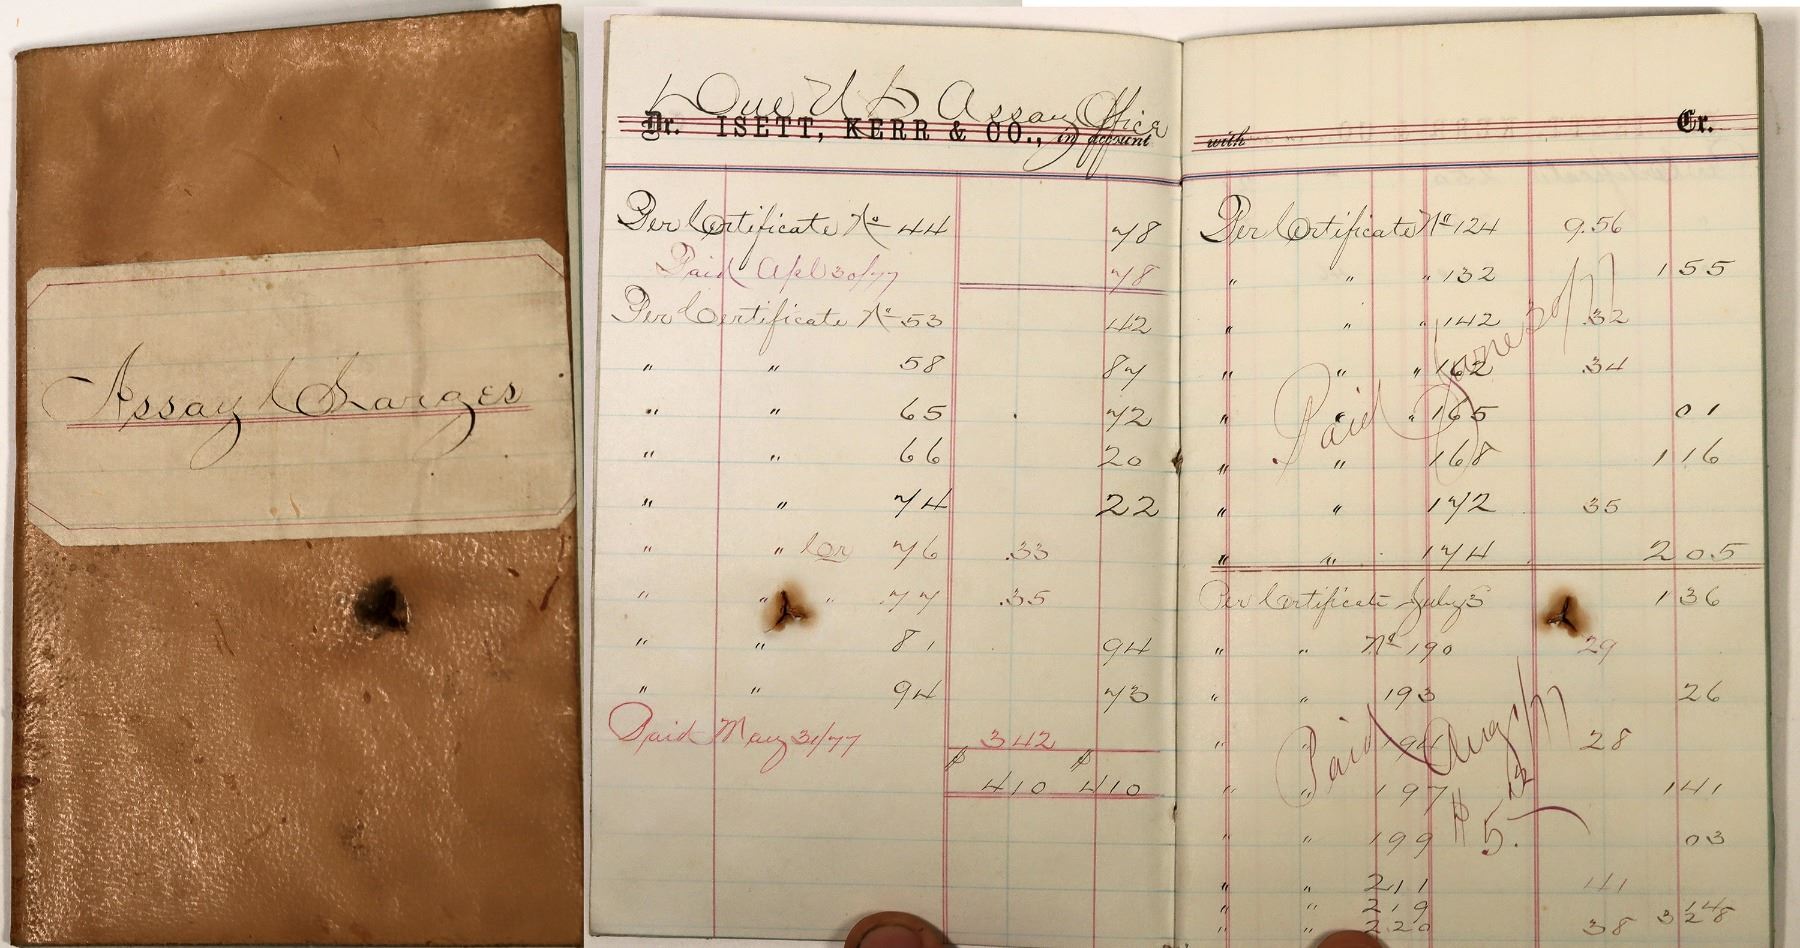 Assay Charges
Due U S Assay Office
Dr. ISETT, KERR & CO., in account
Per Certificate No 44 78
Paid Apl 30/77 78
Per Certificate No 53 42
" " 58 87
" " 65 72
" " 66 20
" " 74 22
" " Cr 76 .33
" " " 77 .35
" " 81 94
" " 94 73
Paid May 31/77 3 42
$ $
4 10 4 10
with Cr.
Per Certificate No 124 9.56
" " " 132 1 55
" " " 142 .32
" " " 162 .34
" " " 165 01
" " 168 1 16
" " 172 35
" " 174 2 05
Paid June 30/77
Per Certificate July 5 1 36
" " No 190 29
" " 193 26
" " 194 28
" " 197 1 41
" " 199 03
" " 211 41
" " 219
" " 220 38
Paid Aug